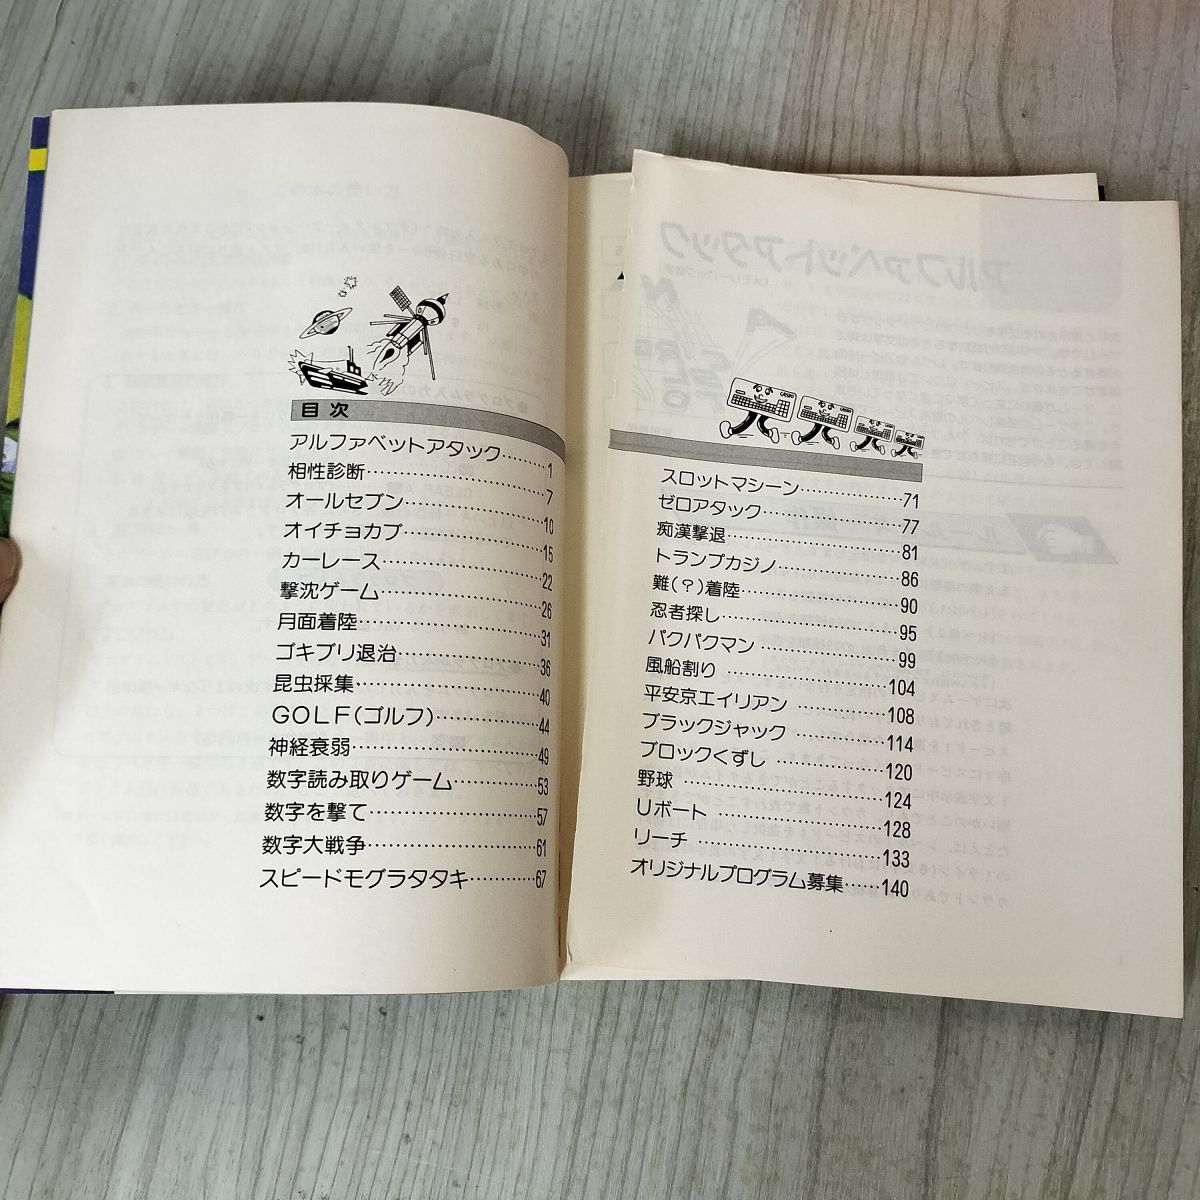 目次
アルファベットアタック………1
相性診断………7
オールセブン………10
オイチョカブ………15
カーレース………22
撃沈ゲーム………26
月面着陸………31
ゴキブリ退治………36
昆虫採集………40
GOLF(ゴルフ)………44
神経衰弱………49
数字読み取りゲーム………53
数字を撃て………57
数字大戦争………61
スピードモグラタタキ………67
スロットマシーン………71
ゼロアタック………77
痴漢撃退………81
トランプカジノ………86
難(?)着陸………90
忍者探し………95
パクパクマン………99
風船割り………104
平安京エイリアン………108
ブラックジャック………114
ブロックくずし………120
野球………124
Uボート………128
リーチ………133
オリジナルプログラム募集……140